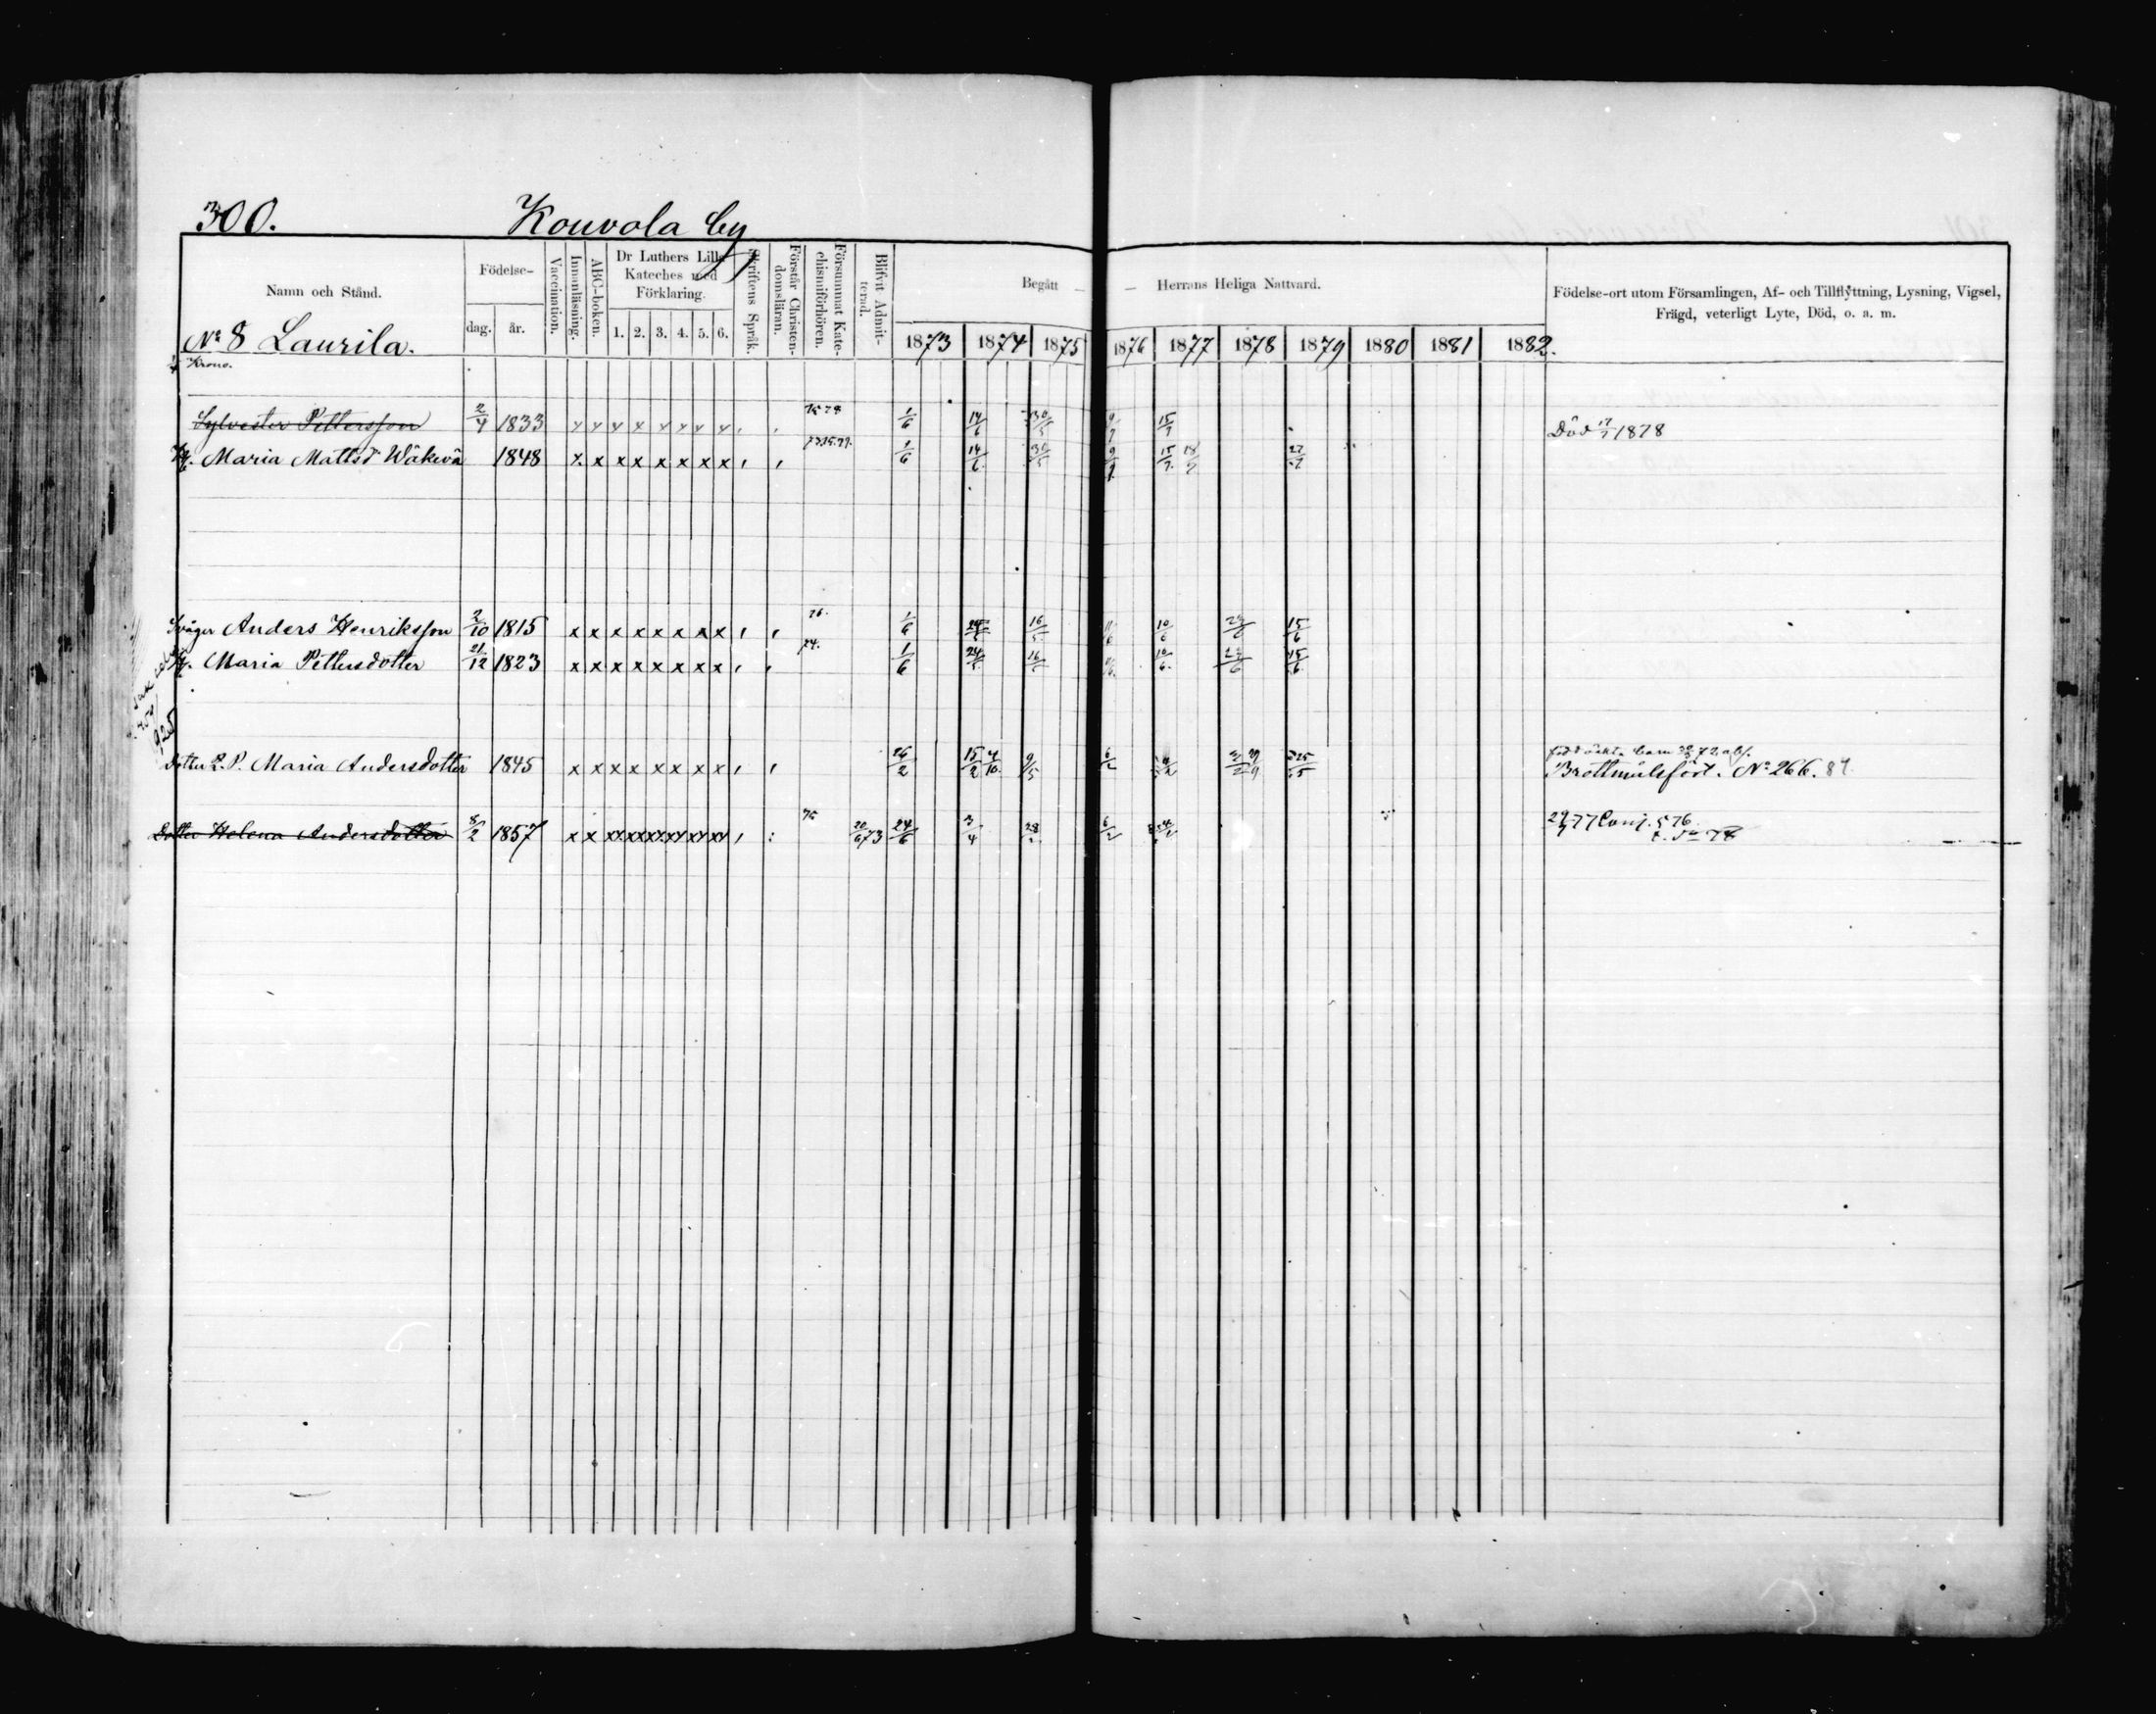 300. Kouvola by
Namn och Stånd.
Födelse-
dag. år.
Vaccination.
Innanläsning.
ABC-boken.
Dr Luthers Lilla
Kateches med
Förklaring.
1. 2. 3. 4. 5. 6.
Skriftens Språk.
Förstår Christen-
domsläran.
Försummat Kate-
chismiförhören.
Blifvit Admit-
terad.
Begått — — Herrans Heliga Nattvard.
1873 1874 1875 1876 1877 1878 1879 1880 1881 1882.
Födelse-ort utom Församlingen, Af- och Tillflyttning, Lysning, Vigsel,
Frägd, veterligt Lyte, Död, o. a. m.
No 8 Laurila.
Krono.
Sylvester Pettersson 2/4 1833 x x x x x x x x 1/6 14/6 30/5 15/7 Död 17/7 1878
H. Maria Mattsd Wäkevä 1848 x x x x x x x x 1/6 14/6 30/5 9/7 15/7 18/7 27/7
Svåger Anders Henriksson 2/10 1815 x x x x x x x x 76. 1/6 24/5 16/5 10/6 23/6 15/6
H. Maria Pettersdotter 21/12 1823 x x x x x x x x 74. 1/6 24/5 16/5 10/6 23/6 15/6
Dotter L. P. Maria Andersdotter 1845 x x x x x x x x 26/2 15/2 4/10 9/5 6/2 25/5
Brottmålsförl. No 266. 87.
Dotter Helena Andersdotter 8/2 1857 x x xx xx xx xx xx xx 75 20/6 73 24/6 3/4 28 6/2
29/7 77 Conj. 576